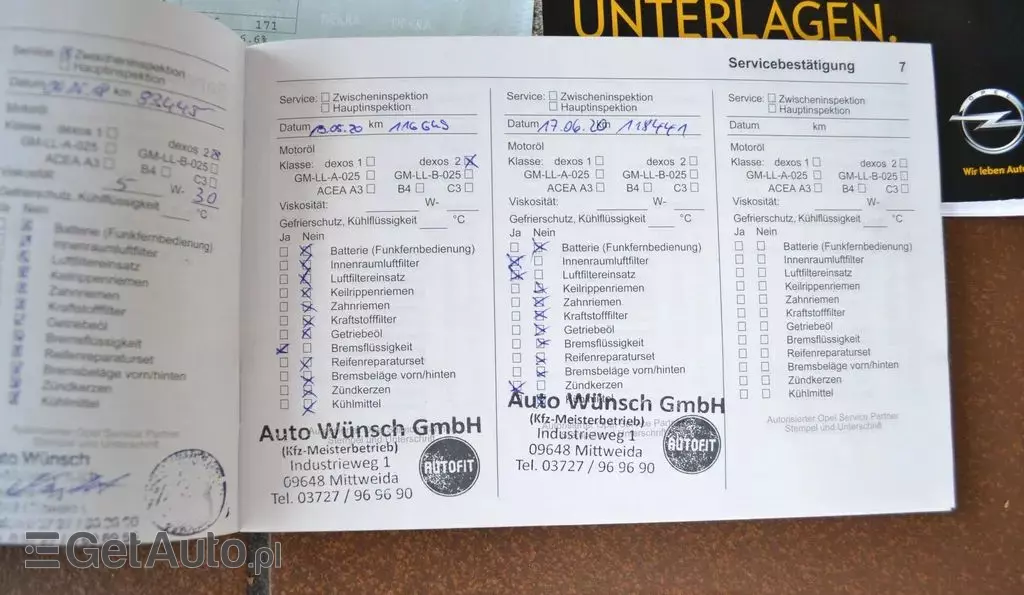 171
UNTERLAGEN.
OPEL
Wir leben Auto
Service: Zwischeninspektion
Hauptinspektion
Datum km 93445
Motoröl
Klasse: dexos 1 dexos 2
GM-LL-A-025 GM-LL-B-025
ACEA A3 B4 C3
Viskosität 5 W- 30
Gefrierschutz, Kühlflüssigkeit °C
Nein
Batterie (Funkfernbedienung)
Innenraumluftfilter
Luftfiltereinsatz
Keilrippenriemen
Zahnriemen
Kraftstofffilter
Getriebeöl
Bremsflüssigkeit
Reifenreparaturset
Bremsbeläge vorn/hinten
Zündkerzen
Kühlmittel
Autorisierter Opel Service Partner
Stempel und Unterschrift
Auto Wünsch
Servicebestätigung 7
Service: Zwischeninspektion
Hauptinspektion
Datum km 116649
Motoröl
Klasse: dexos 1 dexos 2
GM-LL-A-025 GM-LL-B-025
ACEA A3 B4 C3
Viskosität: W-
Gefrierschutz, Kühlflüssigkeit °C
Ja Nein
Batterie (Funkfernbedienung)
Innenraumluftfilter
Luftfiltereinsatz
Keilrippenriemen
Zahnriemen
Kraftstofffilter
Getriebeöl
Bremsflüssigkeit
Reifenreparaturset
Bremsbeläge vorn/hinten
Zündkerzen
Kühlmittel
Auto Wünsch GmbH
(Kfz-Meisterbetrieb)
Stempel und Unterschrift
Industrieweg 1
09648 Mittweida
Tel. 03727 / 96 96 90
AUTOFIT
Service: Zwischeninspektion
Hauptinspektion
Datum 17.06.20 km 118441
Motoröl
Klasse: dexos 1 dexos 2
GM-LL-A-025 GM-LL-B-025
ACEA A3 B4 C3
Viskosität: W-
Gefrierschutz, Kühlflüssigkeit °C
Ja Nein
Batterie (Funkfernbedienung)
Innenraumluftfilter
Luftfiltereinsatz
Keilrippenriemen
Zahnriemen
Kraftstofffilter
Getriebeöl
Bremsflüssigkeit
Reifenreparaturset
Bremsbeläge vorn/hinten
Zündkerzen
Auto Wünsch GmbH
(Kfz-Meisterbetrieb)
Industrieweg 1
09648 Mittweida
Tel. 03727 / 96 96 90
AUTOFIT
Service: Zwischeninspektion
Hauptinspektion
Datum km
Motoröl
Klasse: dexos 1 dexos 2
GM-LL-A-025 GM-LL-B-025
ACEA A3 B4 C3
Viskosität: W-
Gefrierschutz, Kühlflüssigkeit °C
Ja Nein
Batterie (Funkfernbedienung)
Innenraumluftfilter
Luftfiltereinsatz
Keilrippenriemen
Zahnriemen
Kraftstofffilter
Getriebeöl
Bremsflüssigkeit
Reifenreparaturset
Bremsbeläge vorn/hinten
Zündkerzen
Kühlmittel
Autorisierter Opel Service Partner
Stempel und Unterschrift
GetAuto.pl